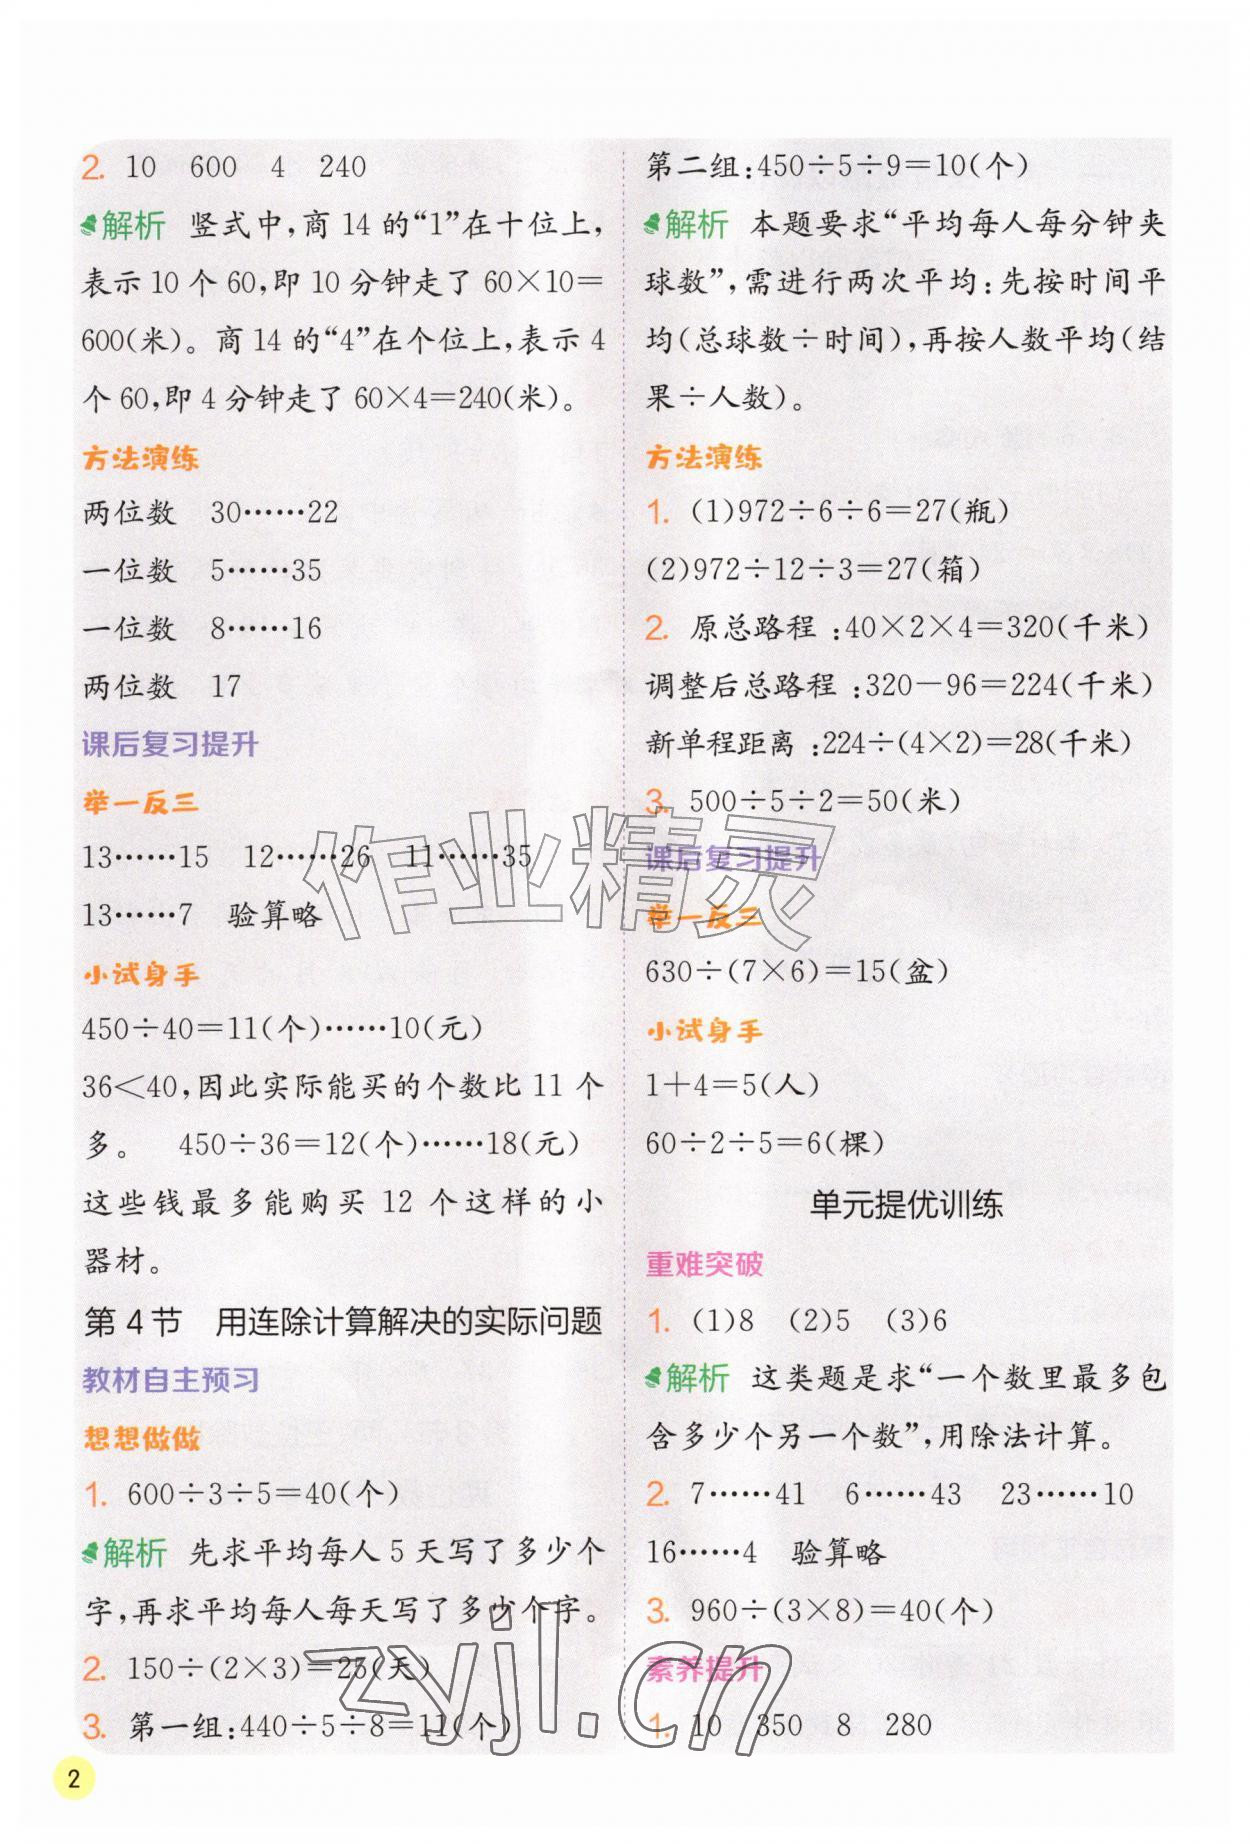 2. 10 600 4 240
解析 竖式中,商14的“1”在十位上,
表示10个60,即10分钟走了60×10=
600(米)。商14的“4”在个位上,表示4
个60,即4分钟走了60×4=240(米)。
方法演练
两位数 30……22
一位数 5……35
一位数 8……16
两位数 17
课后复习提升
举一反三
13……15 12……26 11……35
13……7 验算略
小试身手
450÷40=11(个)……10(元)
36<40,因此实际能买的个数比11个
多。 450÷36=12(个)……18(元)
这些钱最多能购买12个这样的小
器材。
第4节 用连除计算解决的实际问题
教材自主预习
想想做做
1. 600÷3÷5=40(个)
解析 先求平均每人5天写了多少个
字,再求平均每人每天写了多少个字。
2. 150÷(2×3)=25(天)
3. 第一组:440÷5÷8=11(个)
第二组:450÷5÷9=10(个)
解析 本题要求“平均每人每分钟夹
球数”,需进行两次平均:先按时间平
均(总球数÷时间),再按人数平均(结
果÷人数)。
方法演练
1. (1)972÷6÷6=27(瓶)
(2)972÷12÷3=27(箱)
2. 原总路程:40×2×4=320(千米)
调整后总路程:320-96=224(千米)
新单程距离:224÷(4×2)=28(千米)
3. 500÷5÷2=50(米)
课后复习提升
举一反三
630÷(7×6)=15(盆)
小试身手
1+4=5(人)
60÷2÷5=6(棵)
单元提优训练
重难突破
1. (1)8 (2)5 (3)6
解析 这类题是求“一个数里最多包
含多少个另一个数”,用除法计算。
2. 7……41 6……43 23……10
16……4 验算略
3. 960÷(3×8)=40(个)
素养提升
1. 10 350 8 280
作业精灵
zyjl.cn
2